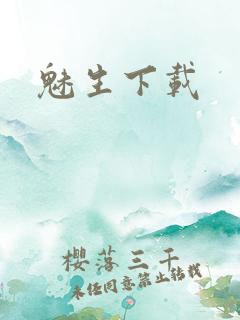 魅生下載
櫻落三千
未经同意禁止转载